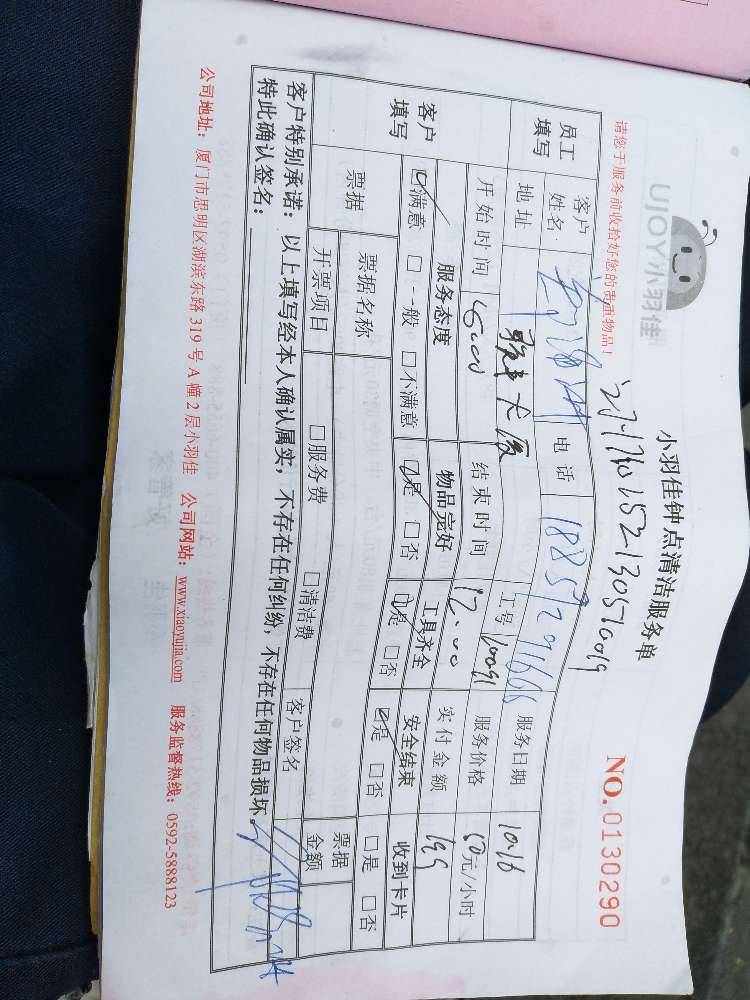 UJOY小羽佳
小羽佳钟点清洁服务单
NO.0130290
请您于服务前收拾好您的贵重物品！
员工填写
客户姓名 电话 服务日期 10.16
地址 大厦 工号 10091 服务价格 50元/小时
开始时间 结束时间 12:00 实付金额 199
客户填写
服务态度 物品完好 工具齐全 安全结束 收到卡片
☑满意 □一般 □不满意 ☑是 □否 ☑是 □否 ☑是 □否 □是 □否
票据 票据名称 票据金额
开票项目 □服务费 □清洁费 客户签名
客户特别承诺：以上填写经本人确认属实，不存在任何纠纷，不存在任何物品损坏。
特此确认签名：
公司地址：厦门市思明区湖滨东路319号A幢2层小羽佳 公司网站：www.xiaoyujia.com 服务监督热线：0592-5888123